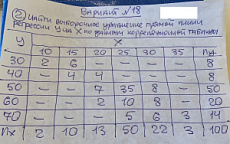 Вариант №18
② Найти выборочное уравнение прямой линии
регрессии Y на X по данным корреляционной таблицы
Y X
10 15 20 25 30 35 ny
30 2 6 - - - - 8
40 - 4 4 - - - 8
50 - - 7 35 8 - 50
60 - - 2 10 8 - 20
70 - - - 5 6 3 14
nx - 2 10 13 50 22 3 100